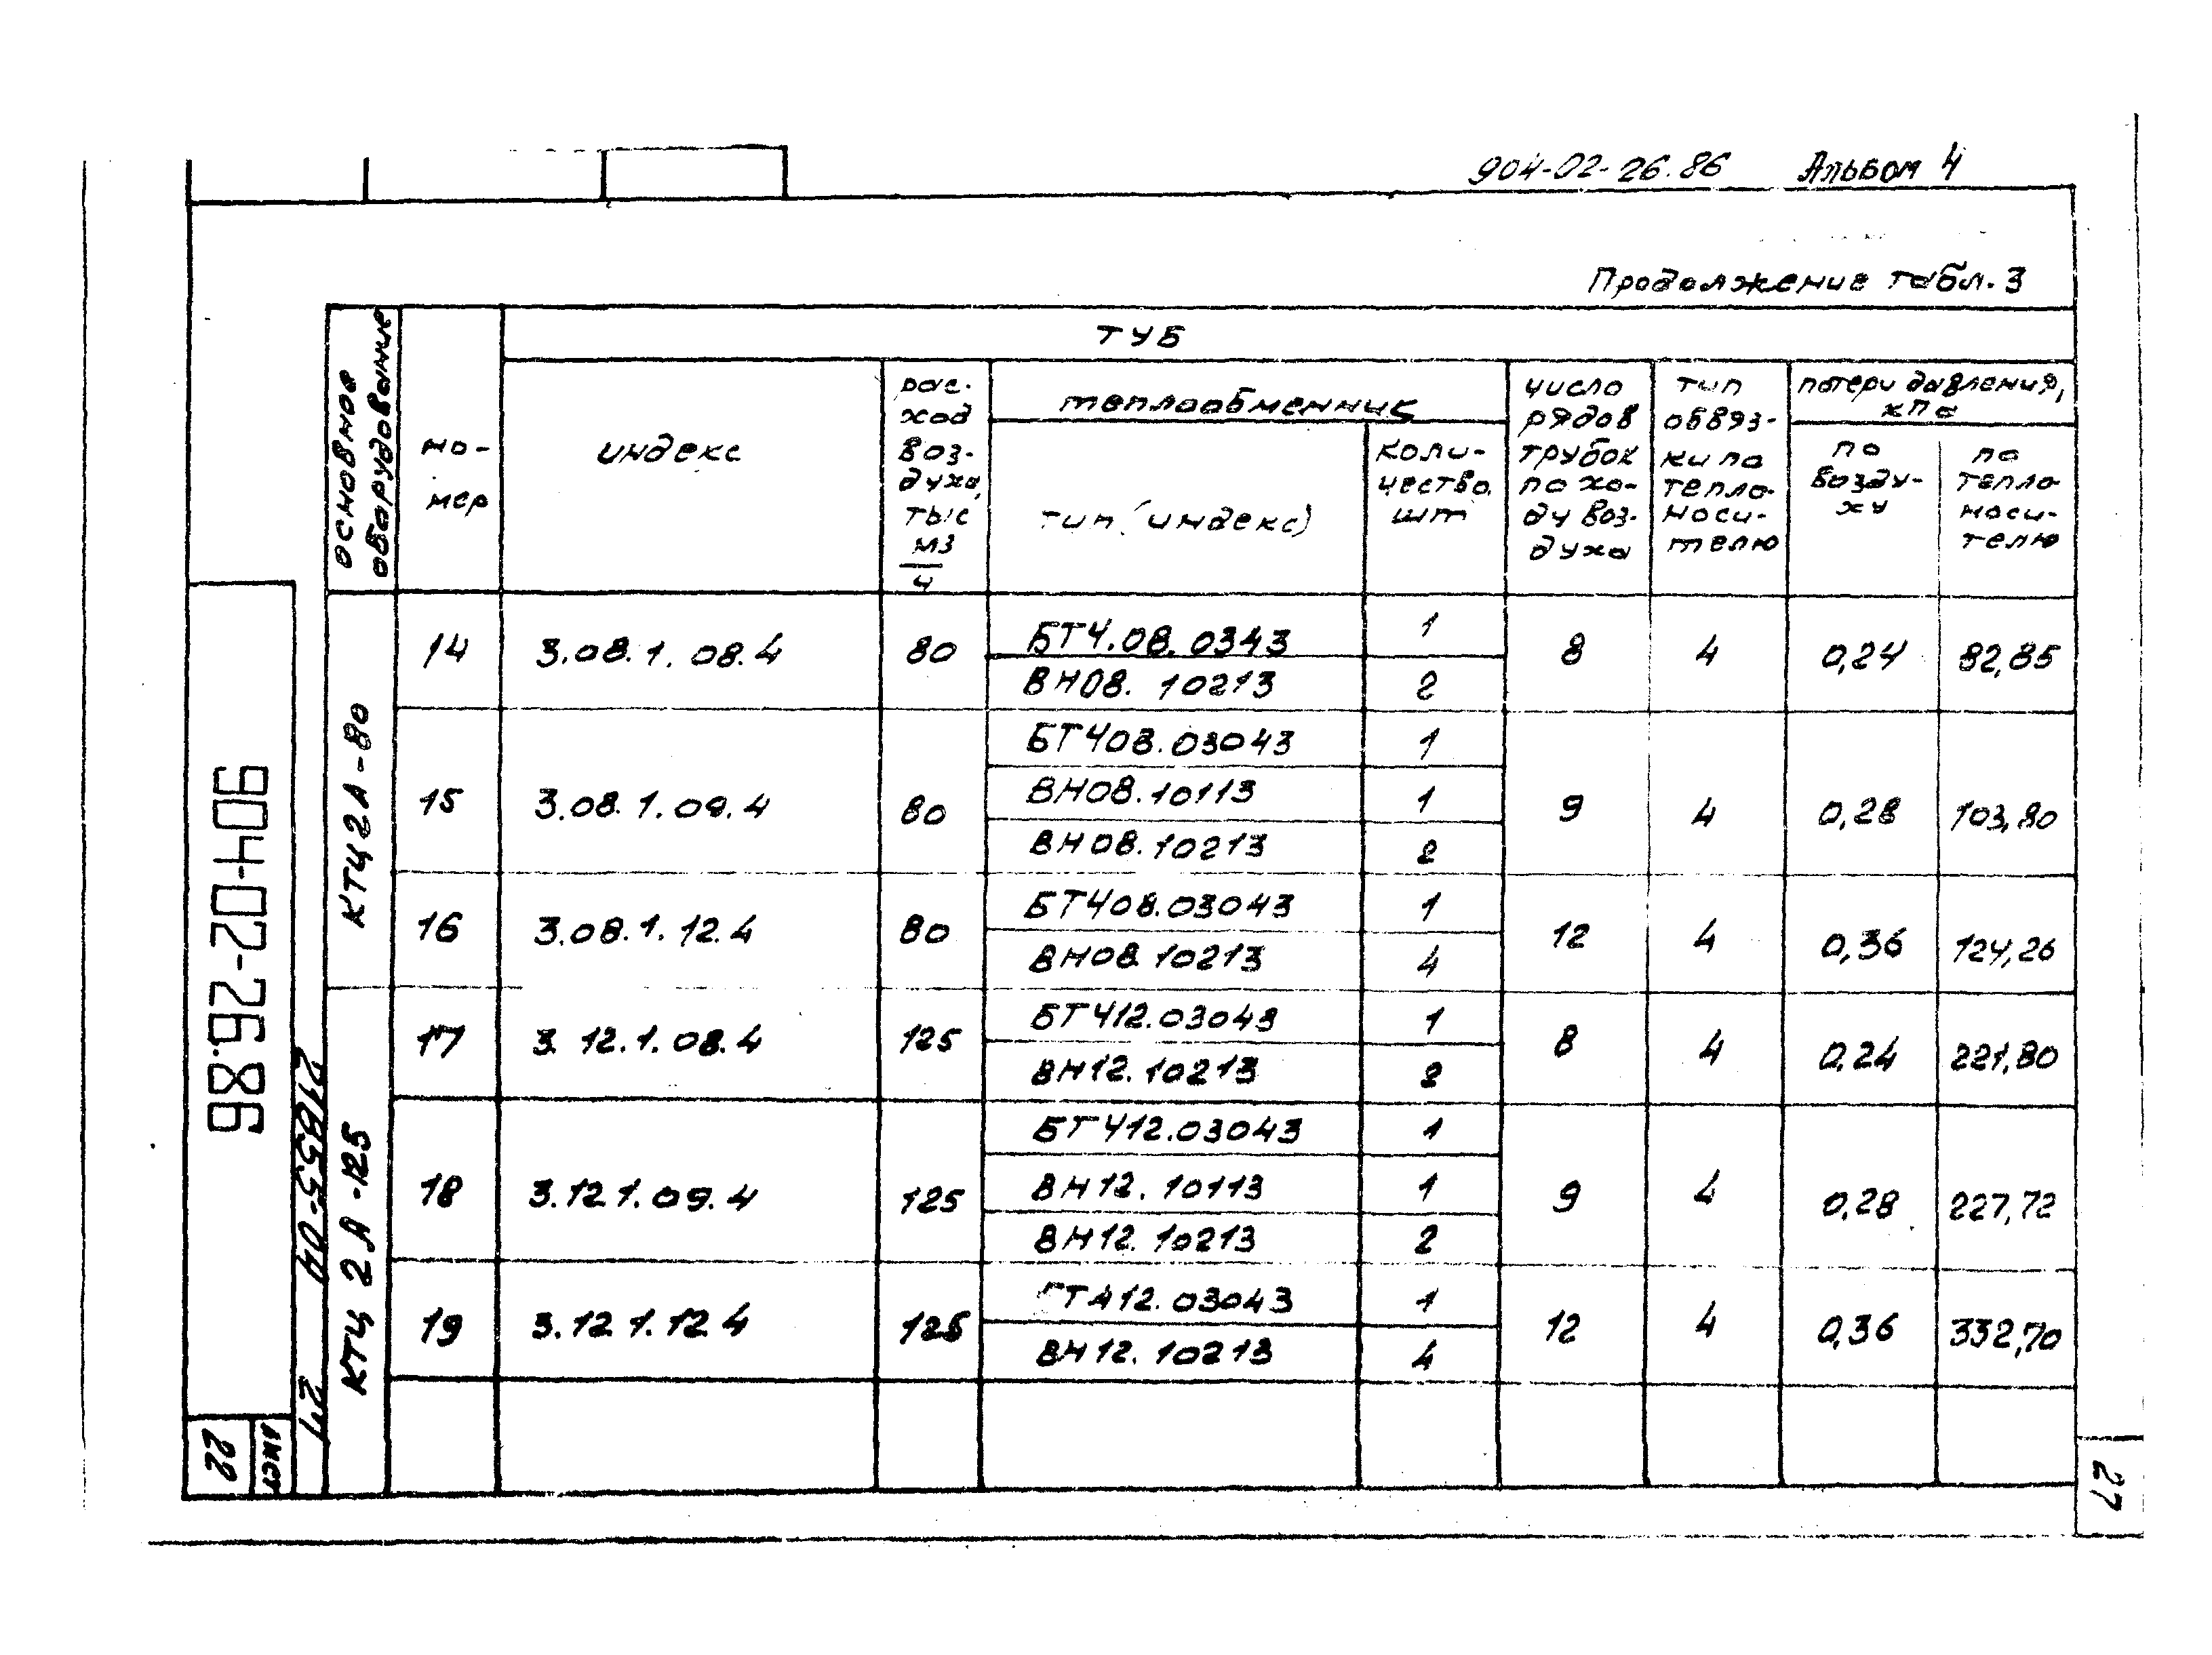 904-02-26.86 Альбом 4
Продолжение табл. 3
основное оборудование
но-
мер
ТУБ
индекс
рас-
ход
воз-
духа,
тыс
м3
ч
теплообменник
тип (индекс)
коли-
чество,
шт
число
рядов
трубок
по хо-
ду воз-
духа
тип
обвяз-
ки по
тепло-
носи-
телю
потери давления,
кПа
по
возду-
ху
по
тепло-
носи-
телю
КТЦ 2А-80
14 3.08.1.08.4 80 БТЧ.08.0343 1 8 4 0,24 82,85
ВН08.10213 2
15 3.08.1.09.4 80 БТЧ08.03043 1 9 4 0,28 103,80
ВН08.10113 1
ВН08.10213 2
16 3.08.1.12.4 80 БТЧ08.03043 1 12 4 0,36 124,26
ВН08 10213 4
КТЦ 2А-125
17 3.12.1.08.4 125 БТЧ12.03043 1 8 4 0,24 221,80
ВН12.10213 2
18 3.12 1.09.4 125 БТЧ12.03043 1 9 4 0,28 227,72
ВН12.10113 1
ВН12.10213 2
19 3.12 1.12 4 125 12.03043 1 12 4 0,36 332,70
ВН12.10213 4
904-02-26.86
21855-04 27
лист
22
27